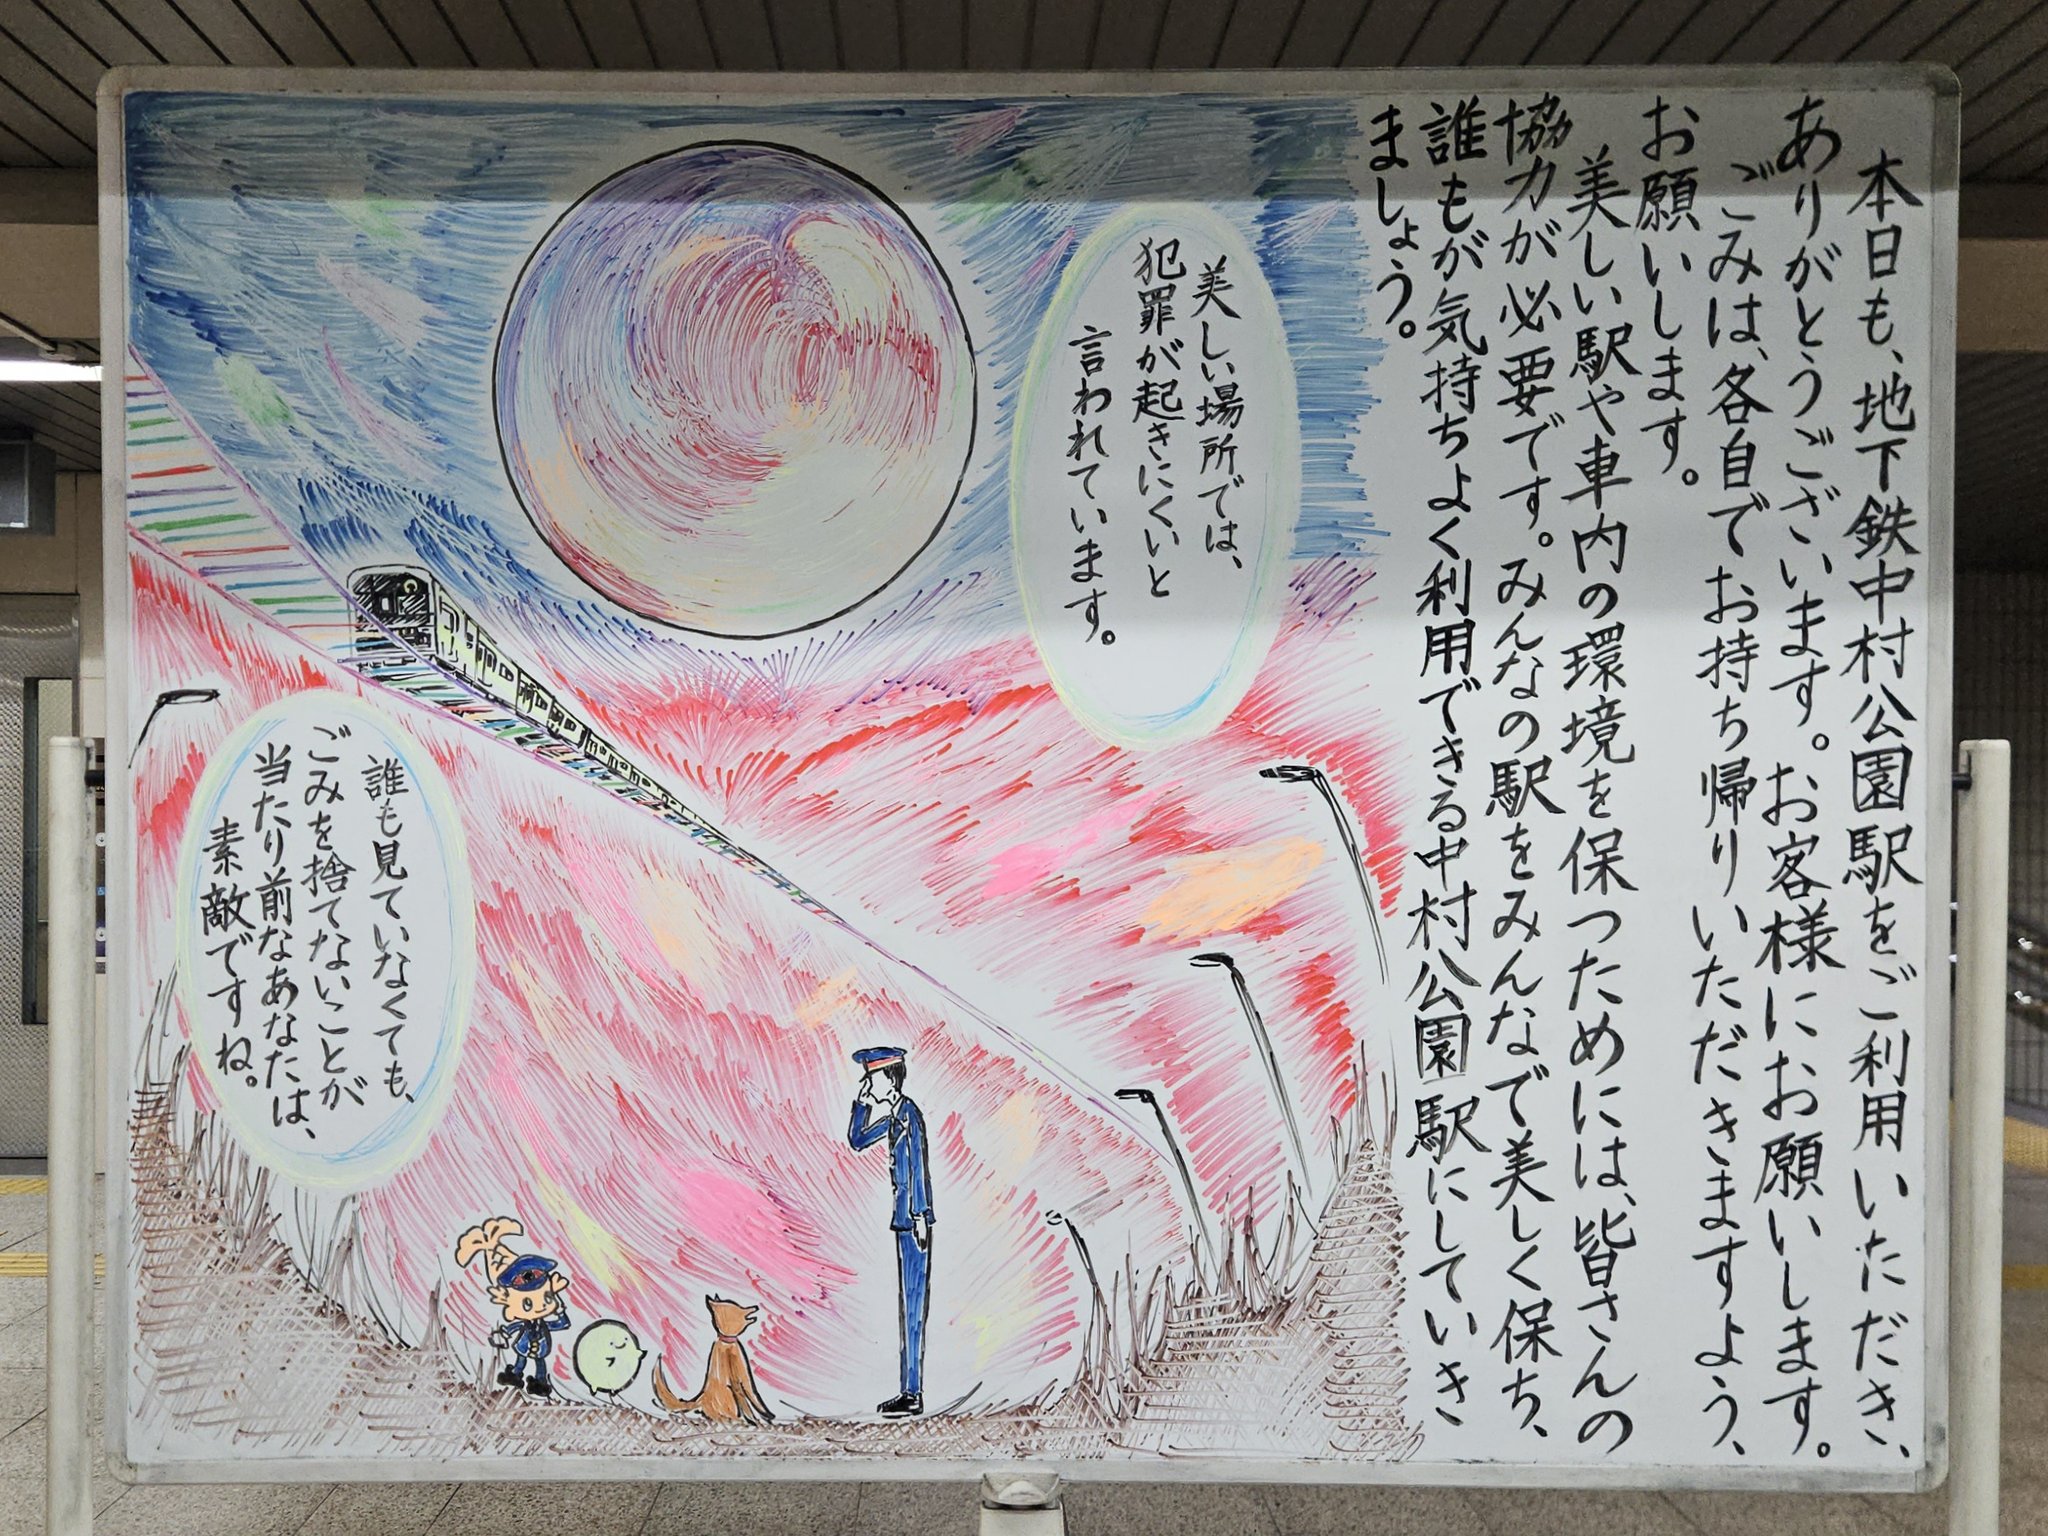 本日も、地下鉄中村公園駅をご利用いただき、
ありがとうございます。お客様にお願いします。
ごみは、各自でお持ち帰りいただきますよう、
お願いします。
美しい駅や車内の環境を保つためには、皆さんの
協力が必要です。みんなの駅をみんなで美しく保ち、
誰もが気持ちよく利用できる中村公園駅にしていき
ましょう。
美しい場所では、
犯罪が起きにくいと
言われています。
誰も見ていなくても、
ごみを捨てないことが
当たり前なあなたは、
素敵ですね。